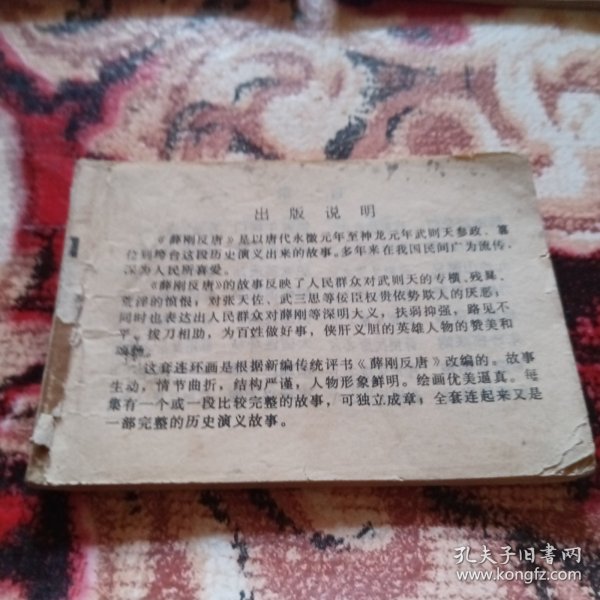 出版说明
《薛刚反唐》是以唐代永徽元年至神龙元年武则天参政、篡
位到垮台这段历史演义出来的故事。多年来在我国民间广为流传，
深为人民所喜爱。
《薛刚反唐》的故事反映了人民群众对武则天的专横、残暴、
荒淫的愤恨；对张天佐、武三思等佞臣权贵依势欺人的厌恶；
同时也表达出人民群众对薛刚等深明大义，扶弱抑强，路见不
平，拔刀相助，为百姓做好事，侠肝义胆的英雄人物的赞美和
这套连环画是根据新编传统评书《薛刚反唐》改编的。故事
生动，情节曲折，结构严谨，人物形象鲜明。绘画优美逼真。每
集有一个或一段比较完整的故事，可独立成章；全套连起来又是
一部完整的历史演义故事。
孔夫子旧书网
www.kongfz.com